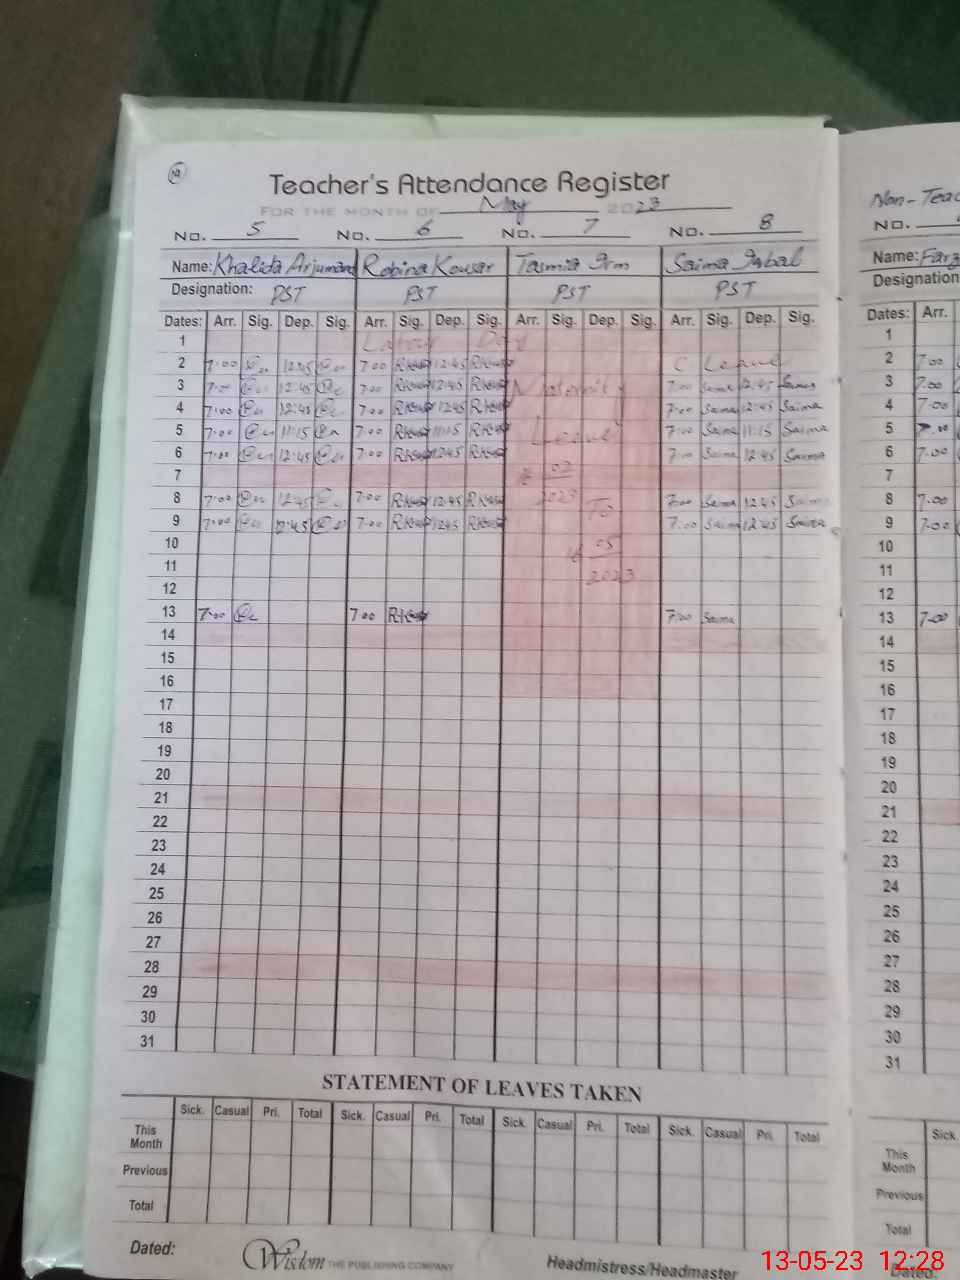 Teacher's Attendance Register
FOR THE MONTH OF May 2023
No. 5 No. 6 No. 7 No. 8
Name: Khalida Arjumand Robina Kousar Tasmia Irm Saima Iqbal
Designation: PST PST PST PST
Dates: Arr. Sig. Dep. Sig. Arr. Sig. Dep. Sig. Arr. Sig. Dep. Sig. Arr. Sig. Dep. Sig.
1 Labour Day
2 7:00 12:45 7:00 12:45 C. Leave
3 7:00 12:45 7:00 12:45 Maternity 7:00 Saima 12:45 Saima
4 7:00 12:45 7:00 12:45 7:00 Saima 12:45 Saima
5 7:00 11:15 7:00 11:15 Leave 7:00 Saima 11:15 Saima
6 7:00 12:45 7:00 12:45 7:00 Saima 12:45 Saima
7 02
8 7:00 12:45 7:00 12:45 2023 To 7:00 Saima 12:45 Saima
9 7:00 12:45 7:00 12:45 7:00 Saima 12:45 Saima
10 05
11 2023
12
13 7:00 7:00 7:00 Saima
14
15
16
17
18
19
20
21
22
23
24
25
26
27
28
29
30
31
STATEMENT OF LEAVES TAKEN
Sick. Casual Pri. Total Sick. Casual Pri. Total Sick. Casual Pri. Total Sick. Casual Pri. Total
This Month
Previous
Total
Dated:
Wisdom THE PUBLISHING COMPANY
Headmistress/Headmaster
Non-Teac
No.
Name: Farz
Designation
Dates: Arr.
1
2 7:00
3 7:00
4 7:00
5 7:00
6 7:00
7
8 7:00
9 7:00
10
11
12
13 7:00
14
15
16
17
18
19
20
21
22
23
24
25
26
27
28
29
30
31
Sick.
This Month
Previous
Total
Dated:
13-05-23 12:28